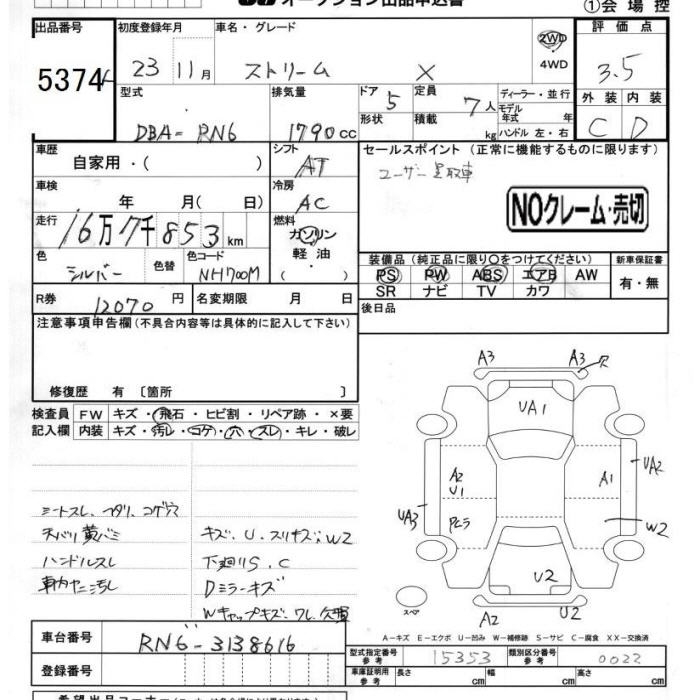 オークション出品申込書 ①会場控
出品番号 初度登録年月 車名・グレード 評価点
5374 23 11月 ストリーム X 2WD 4WD 3.5
型式 排気量 ドア 5 定員 7人 ディーラー・並行 外装 内装
モデル年式 年
DBA-RN6 1790cc 形状 積載 kg ハンドル 左・右 C D
車歴 シフト セールスポイント (正常に機能するものに限ります)
自家用・( ) AT ユーザー買取車
車検 冷房
年 月( 日) AC NOクレーム・売切
走行 燃料
16万7千853km ガソリン
色 色替 色コード 軽油・ 装備品 (純正品に限り○をつけてください) 新車保証書
シルバー NH700M ( ) PS PW ABS エアB AW 有・無
R券 12070円 名変期限 月 日 SR ナビ TV カワ
後日品
注意事項申告欄 (不具合内容等は具体的に記入して下さい)
修復歴 有 〔箇所 〕
検査員 FW キズ・飛石・ヒビ割・リペア跡・×要
記入欄 内装 キズ・汚レ・コゲ・穴・スレ・キレ・破レ
A3 A3
UA1
A2 U1 A1 UA2
UA3 W2
U2
スペア A2 U2
シートスレ、ヘタリ、コゲ穴
天バリ黄バミ キズ、U、スリキズ、W2
ハンドルスレ 下廻りS、C
車内ヤニ汚レ Dミラーキズ
Wキャップキズ、ワレ、欠損
A-キズ E-エクボ U-凹み W-補修跡 S-サビ C-腐食 XX-交換済
車台番号 RN6-3138616 型式指定番号 参考 15353 類別区分番号 参考 0022
登録番号 車庫証明用 参考 長さ cm 幅 cm 高さ cm
希望出品コーナー